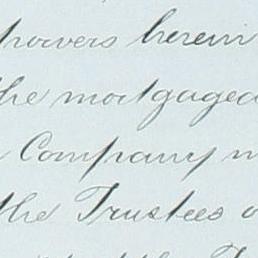 powers herein
the mortgaged
Company
the Trustees